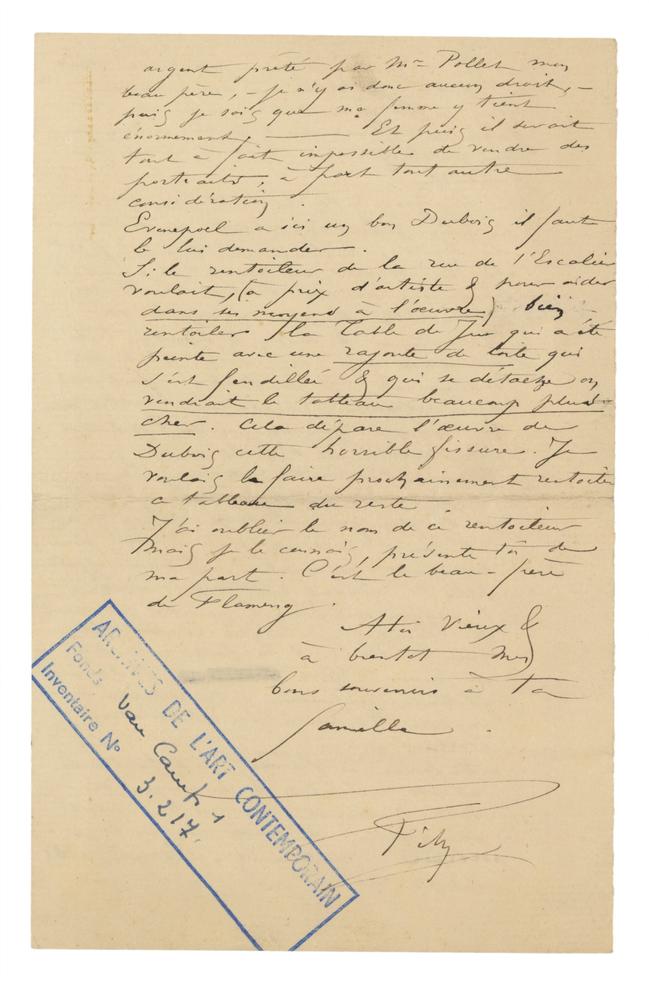 argent prêté par Mr Pollet mon
beau père, - je n'y ai donc aucun droit, -
puis je sais que ma femme y tient
énormement, ——— Et puis il serait
tout à fait impossible de vendre des
portraits, à part tout autre
considération.
Evenepoel a ici un bon Dubois il faut
le lui demander.
Si le rentoileur de la rue de l'Escalier
voulait, (à prix d'artiste & pour aider
dans ses moyens à l'œuvre) bien
rentoiler la Table de Jeu qui a été
peinte avec une rajoute de toile qui
s'est fendillée & qui se détache on
vendrait le tableau beaucoup plus
cher. Cela dépare l'œuvre de
Dubois cette horrible fissure. Je
voulais la faire prochainement rentoiler
ce tableau du reste.
J'ai oublier le nom de ce rentoileur
mais je le connais, présente toi de
ma part. C'est le beau-frère
de Flameng.
A toi Vieux &
à bientot mes
bons souvenirs à ta
famille.
ARCHIVES DE L'ART CONTEMPORAIN
Fonds Van Camp 1
Inventaire N° 3.217.